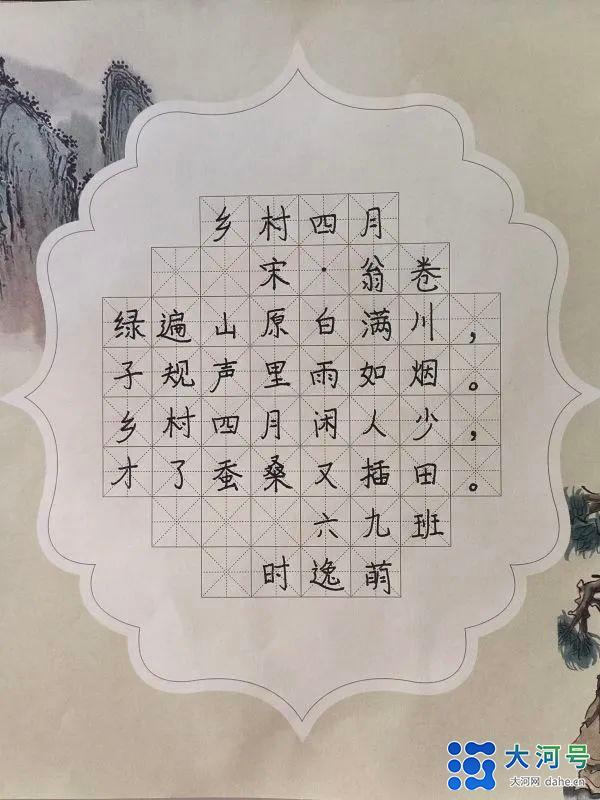 乡村四月
宋·翁卷
绿遍山原白满川，
子规声里雨如烟。
乡村四月闲人少，
才了蚕桑又插田。
六九班
时逸萌
大河号
大河网 dahe.cn